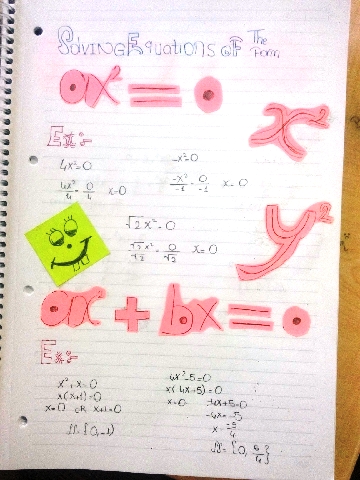 Solving Equations of The Form
ax² = 0
x²
Ex:-
4x²=0
4x²/4 = 0/4 x=0
-x²=0
-x²/-1 = 0/-1 x=0
√2x²=0
√2x²/√2 = 0/√2 x=0
y²
ax + bx = 0
Ex:-
x²+x=0
x(x+1)=0
x=0 OR x+1=0
4x²-5=0
x(4x+5)=0
x=0 4x+5=0
-4x=-5